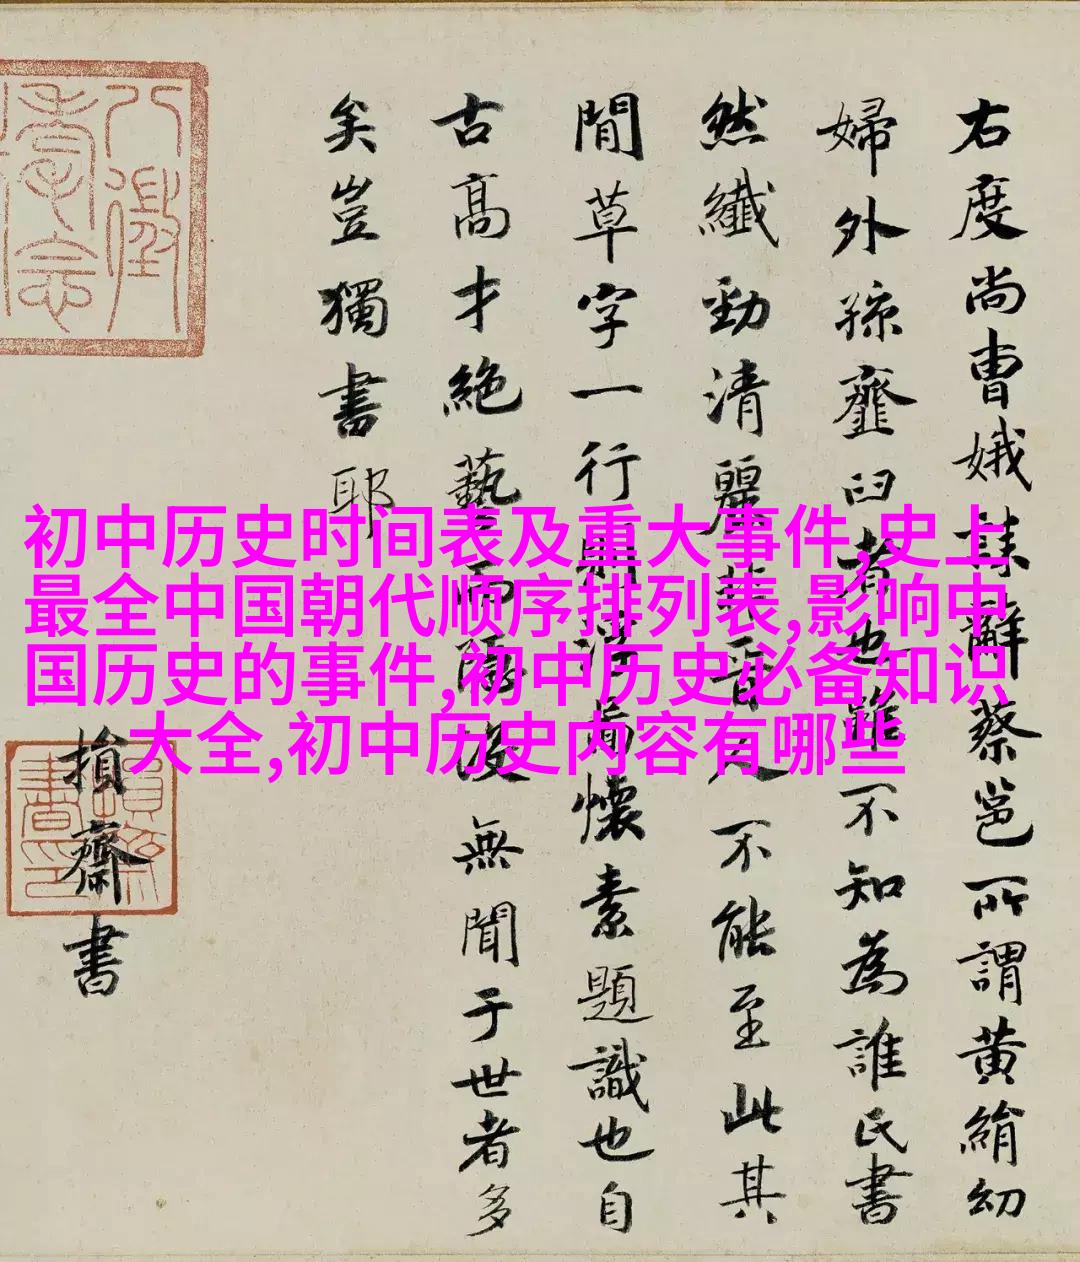 右度尚曹娥誄辭蔡邕所謂黃絹幼
婦外孫虀臼者也雖不知為誰氏書
然纖勁清麗非晉人不能至此其
閒草字一行則懷素題識也自
古高才絕藝而隱沒無聞于世者多
矣豈獨書耶
損齋書
初中历史时间表及重大事件,史上
最全中国朝代顺序排列表,影响中
国历史的事件,初中历史必备知识
大全,初中历史内容有哪些